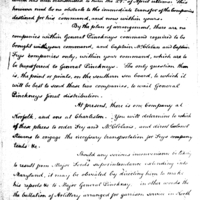 was not transmitted to the 24th of April ultimo. This
however need be no obstacle to the immediate transfer of the companies
destined for his command, and now within yours.
By the plan of arrangement, there are no
companies within General Pinckneys command required to be
brought within your command, and Captains McClellan and Captain
Frys companies only, within your command, which are to
be transferred to General Pinckneys. The only question then
is, the point or points, on the southern sea board, to which it
will be best to send these two companies, to wait General
Pinckneys final distribution.
At present, there is one Company at
Norfolk, and one at Charleston. You will determine to which
of these places to order Fry and McClellan, and direct Colonel
Stevens to engage the necessary transportation for Frys company
tents &c.
Should any serious inconvenience be likely
to result from Major General Pinckneys superintendence extending into
Maryland, it may be obviated by directing him to make
his reports &c to Major General Pinckney. in other words the
the limitation of Artillery arranged for garrison service in North